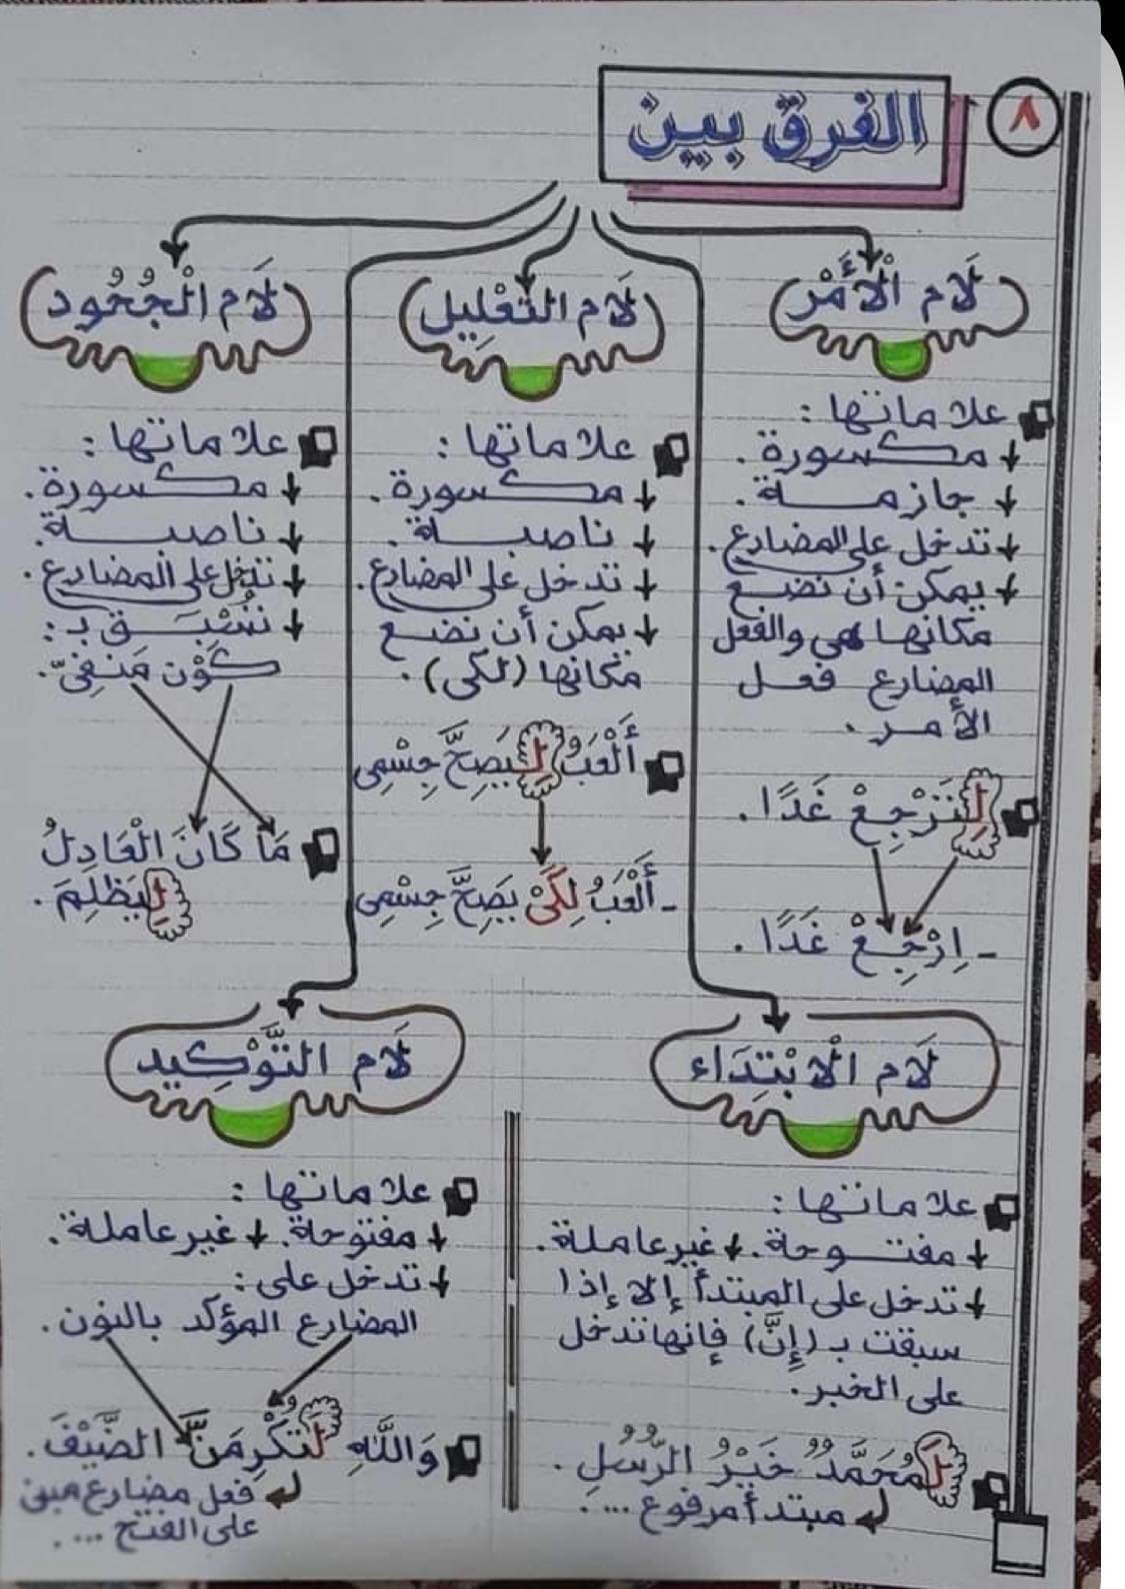 ٨
الفرق بين
لَام الْأَمْر
علاماتها :
مكسورة .
جازمة .
تدخل على المضارع .
يمكن أن نضع
مكانها هي والفعل
المضارع فعل
الأمر .
لِتَرْجِعْ غَدًا .
- اِرْجِعْ غَدًا .
لَام التَّعْلِيل
علاماتها :
مكسورة .
ناصبة .
تدخل على المضارع .
يمكن أن نضع
مكانها (لكي) .
أَلْعَبُ لِيَصِحَّ جِسْمِي
- أَلْعَبُ لِكَيْ يَصِحَّ جِسْمِي
لَام الْجُحُود
علاماتها :
مكسورة .
ناصبة .
تدخل على المضارع .
تُسْبَق بـ :
كَوْن مَنفِيّ .
مَا كَانَ الْعَادِلُ
لِيَظْلِمَ .
لَام الْابْتِدَاء
علاماتها :
مفتوحة . غير عاملة .
تدخل على المبتدأ إلا إذا
سبقت بـ (إِنَّ) فإنها تدخل
على الخبر .
لَمُحَمَّدٌ خَيْرُ الرُّسُلِ .
مبتدأ مرفوع .....
لَام التَّوْكِيد
علاماتها :
مفتوحة . غير عاملة .
تدخل على :
المضارع المؤكد بالنون .
وَاللَّهِ لَتُكْرِمَنَّ الضَّيْفَ .
فعل مضارع مبني
على الفتح ....